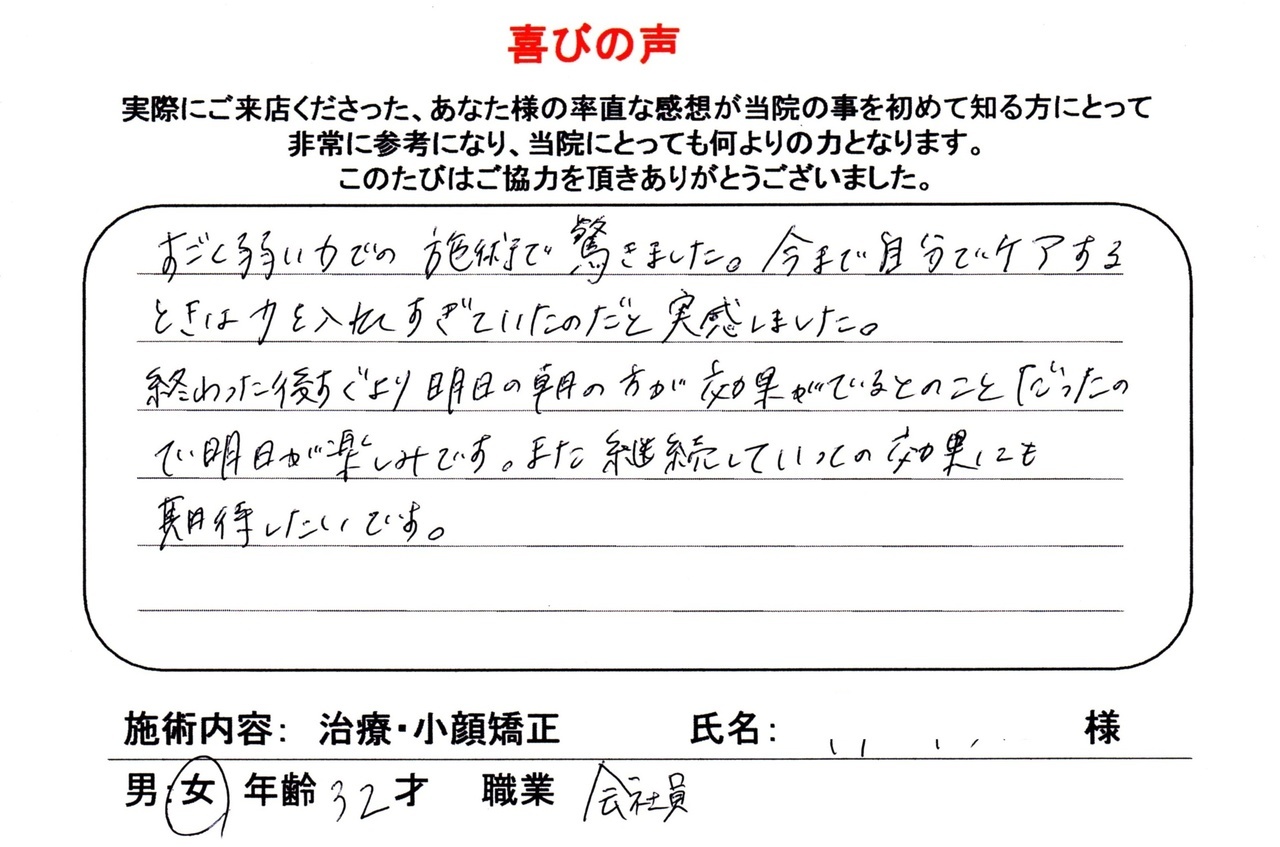 喜びの声
実際にご来店くださった、あなた様の率直な感想が当院の事を初めて知る方にとって
非常に参考になり、当院にとっても何よりの力となります。
このたびはご協力を頂きありがとうございました。
すごく弱い力での施術で驚きました。今まで自分でケアする
ときは力を入れすぎていたのだと実感しました。
終わった後すぐより明日の朝の方が効果がでているとのことだったの
で明日が楽しみです。また継続していっての効果にも
期待したいです。
施術内容： 治療・小顔矯正 氏名： 様
男：女 年齢 32才 職業 会社員